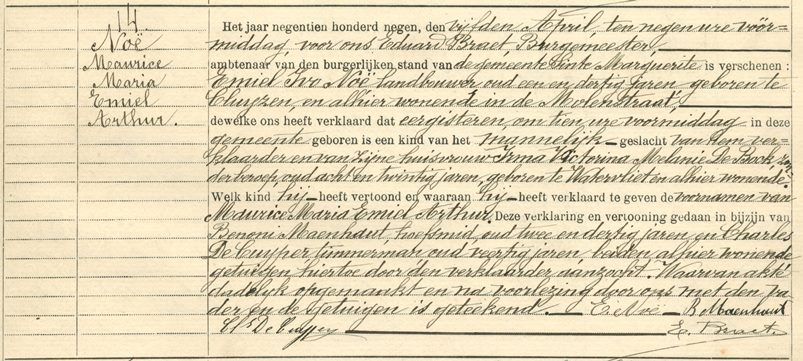 14
Noë
Maurice
Maria
Emiel
Arthur.
Het jaar negentien honderd negen, den vijfden April, ten negen ure voor-
middag, voor ons Eduard Braet, Burgemeester,
ambtenaar van den burgerlijken stand van de gemeente Sinte Marguerite is verschenen :
Emiel Ivo Noë landbouwer oud een en dertig jaren geboren te
Cluijzen, en alhier wonende in de Molenstraat,
dewelke ons heeft verklaard dat eergisteren, om tien ure voormiddag in deze
gemeente geboren is een kind van het mannelijk geslacht van hem ver-
klaarder en van zijne huisvrouw Irma Victorina Melanie De Bock, zon-
der beroep, oud acht en twintig jaren, geboren te Watervliet en alhier wonende.
Welk kind hij heeft vertoond en waaraan hij heeft verklaard te geven de voornamen van
Maurice Maria Emiel Arthur. Deze verklaring en vertooning gedaan in bijzijn van
Benoni Maenhaut, hoefsmid, oud twee en dertig jaren en Charles
De Cuijper timmerman oud veertig jaren, beiden alhier wonende
getuigen, hiertoe door den verklaarder aanzocht. Waarvan akte
dadelijk opgemaakt en na voorlezing door ons met den va-
der en de getuigen is geteekend. E. Noë B Maenhaut
Ch^s De Cuijper E. Braet.